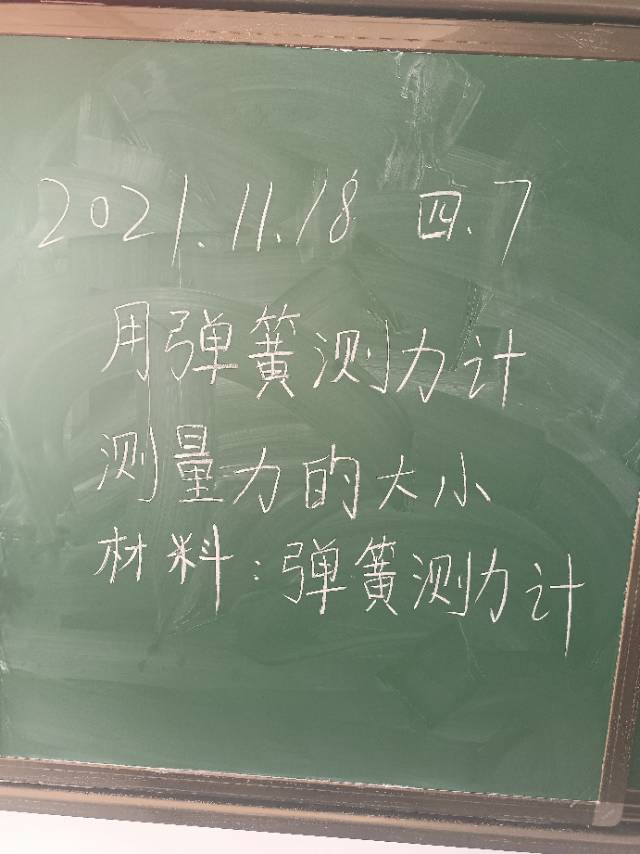 2021.11.18 四.7
用弹簧测力计
测量力的大小
材料:弹簧测力计